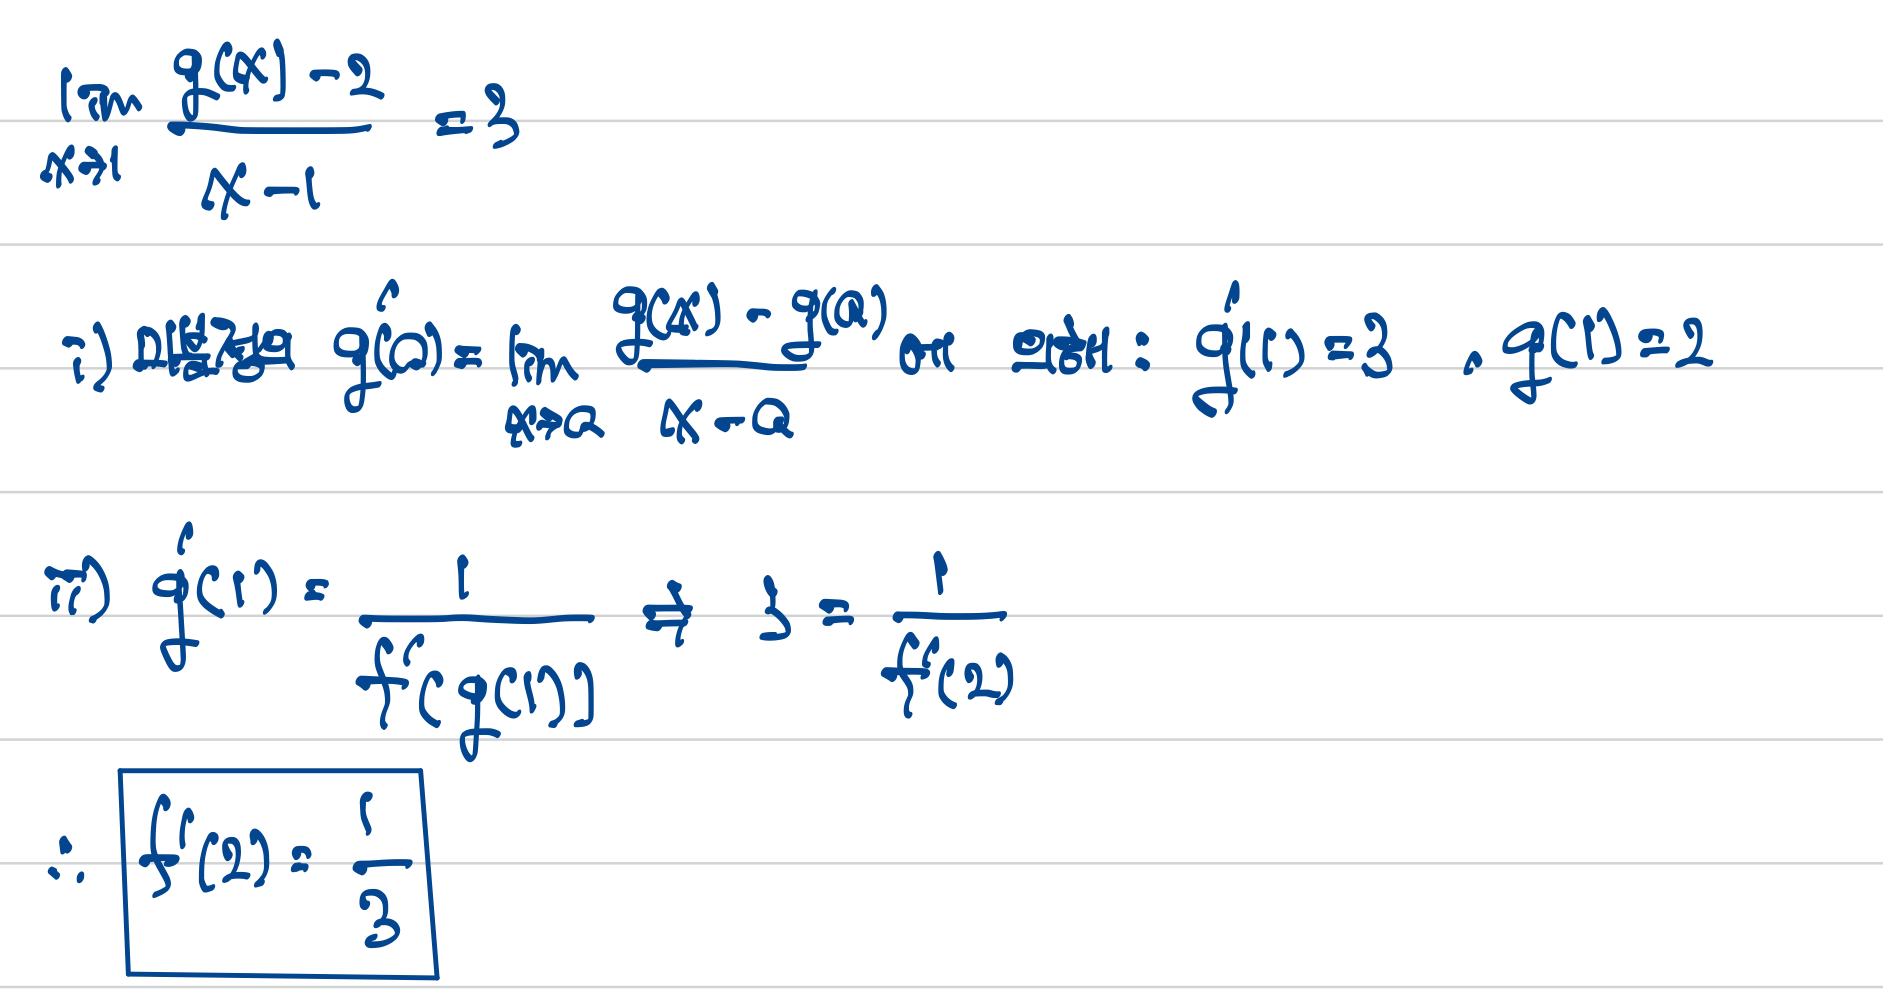 lim x→1 (g(x) - 2)/(x - 1) = 3
i) 미분계수의 g'(a) = lim x→a (g(x) - g(a))/(x - a) 에 의해 : g'(1) = 3 , g(1) = 2
ii) g'(1) = 1/(f'(g(1))) ⇒ 3 = 1/(f'(2))
∴ f'(2) = 1/3